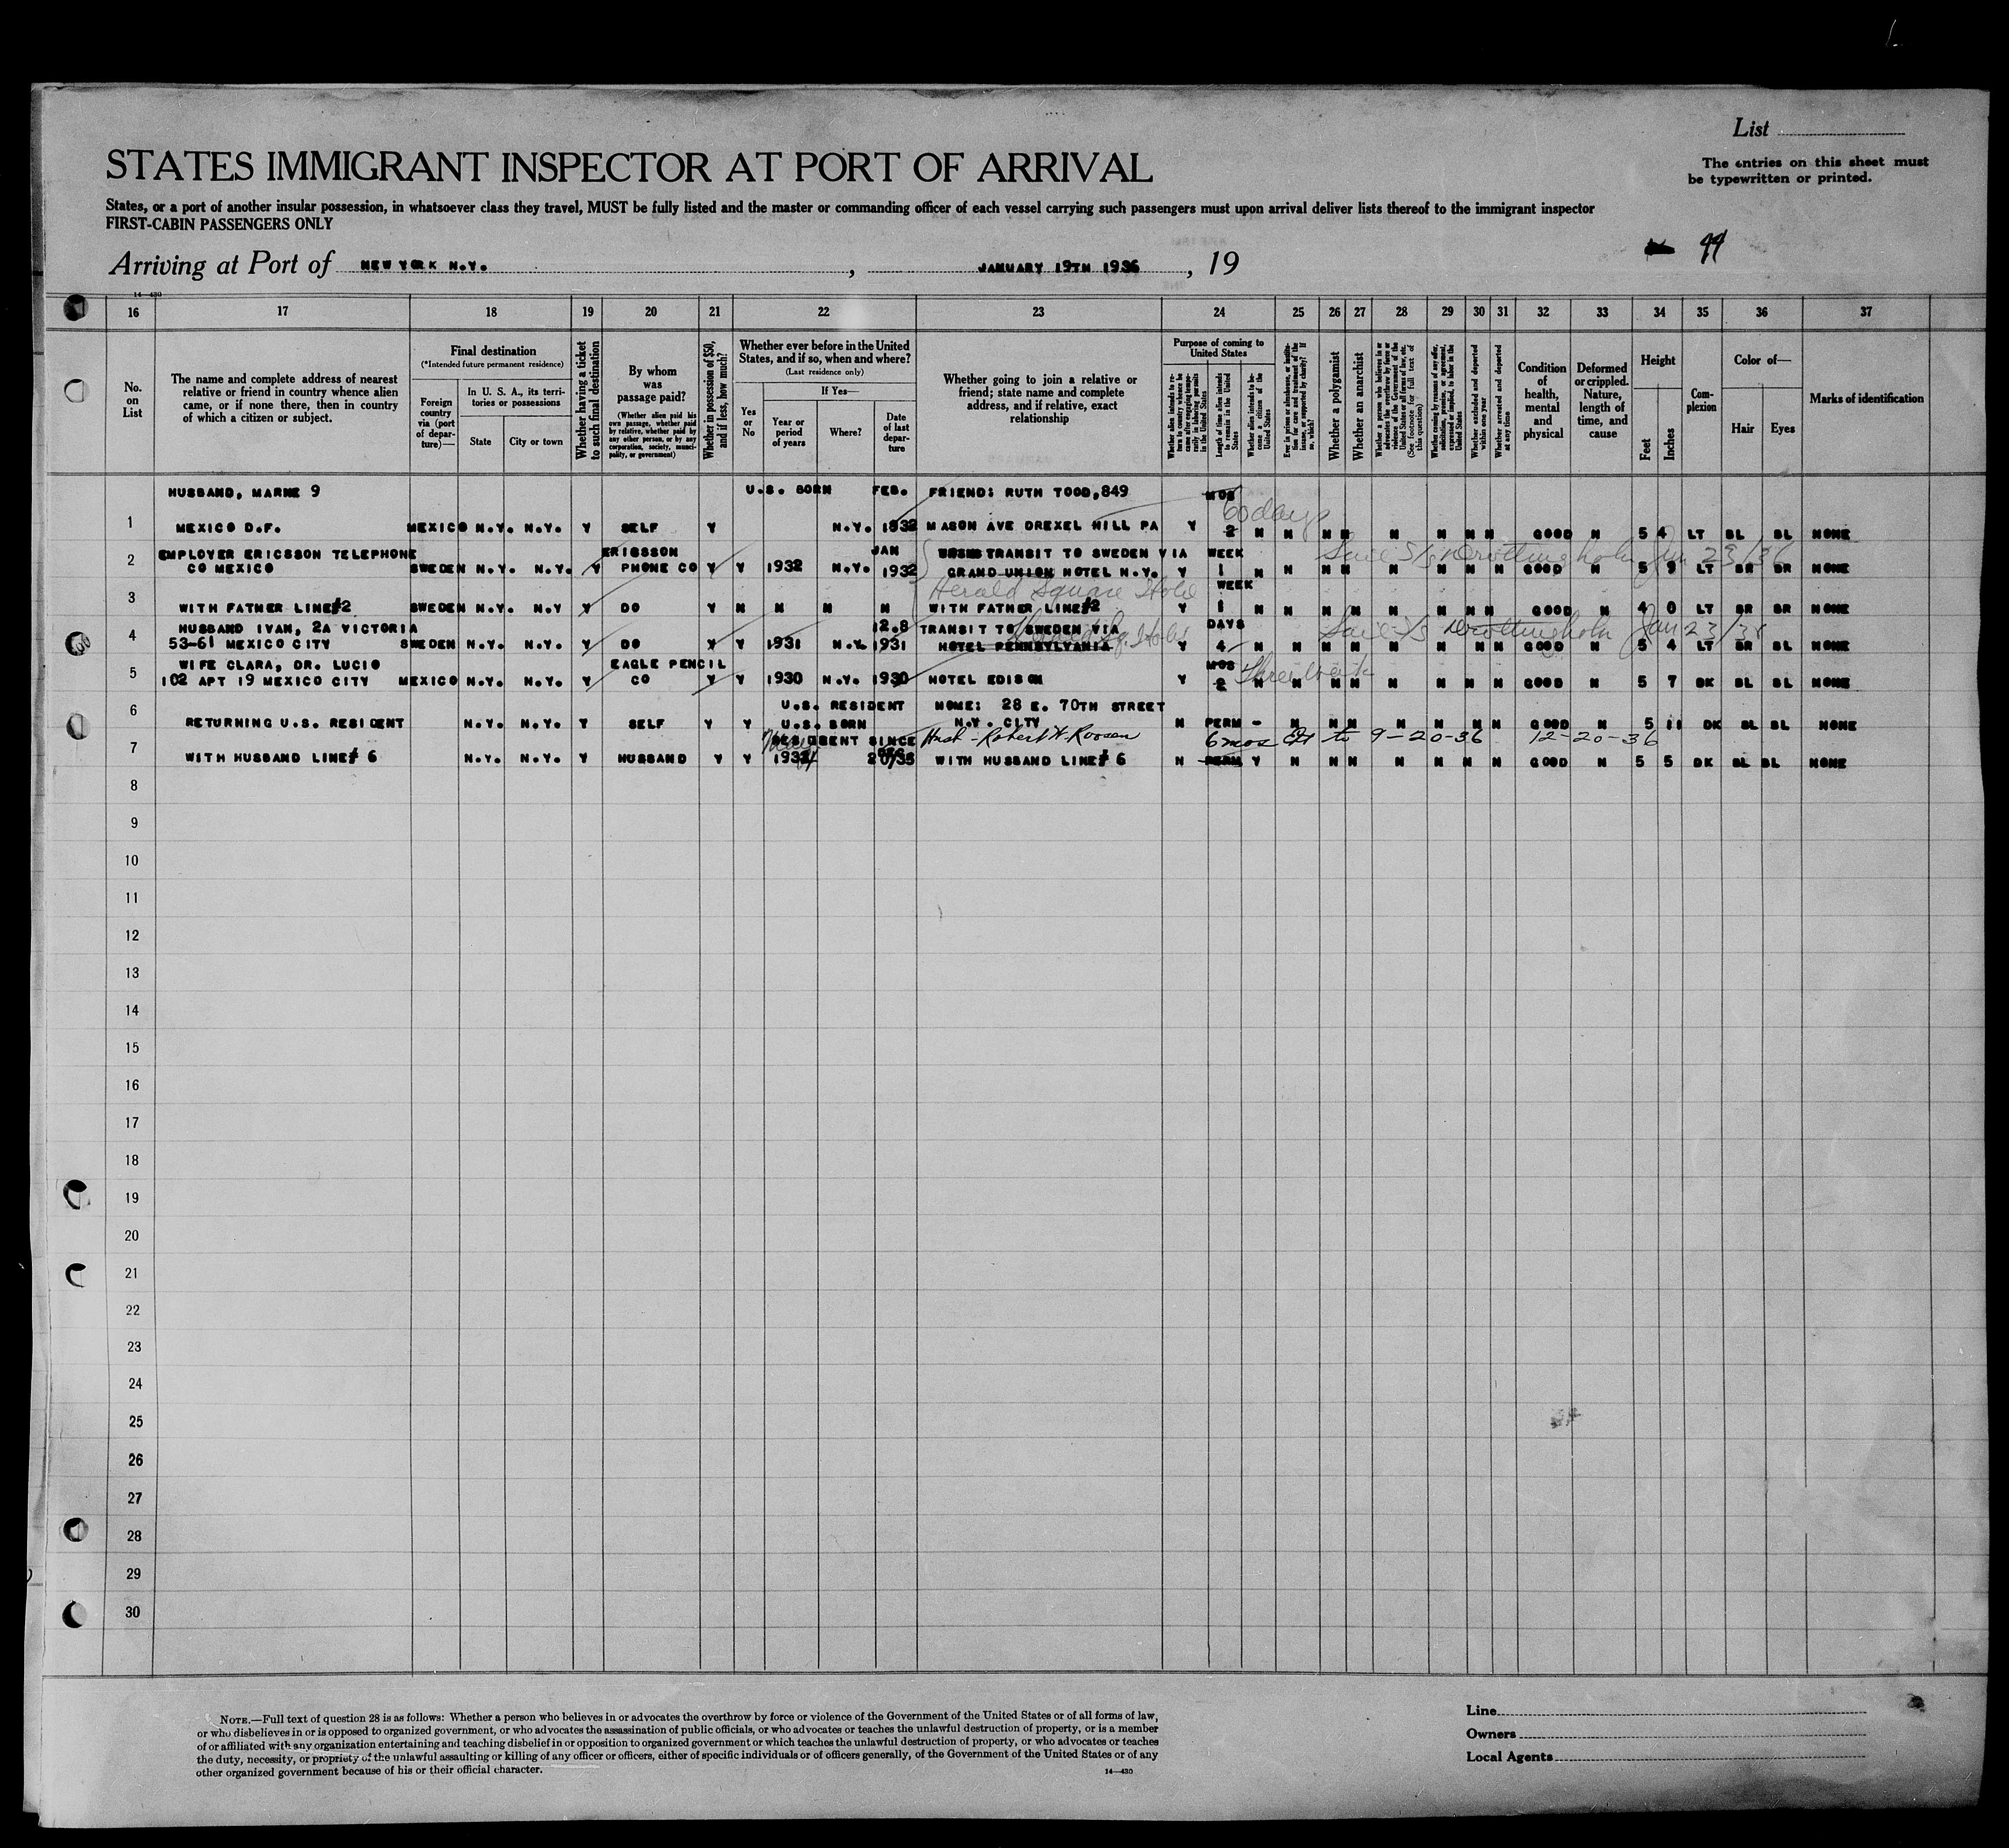 List
STATES IMMIGRANT INSPECTOR AT PORT OF ARRIVAL
The entries on this sheet must
be typewritten or printed.
States, or a port of another insular possession, in whatsoever class they travel, MUST be fully listed and the master or commanding officer of each vessel carrying such passengers must upon arrival deliver lists thereof to the immigrant inspector
FIRST-CABIN PASSENGERS ONLY
Arriving at Port of NEW YORK N.Y. , JANUARY 19TH 1936 , 19
14—430
16 17 18 19 20 21 22 23 24 25 26 27 28 29 30 31 32 33 34 35 36 37
No. on List
The name and complete address of nearest
relative or friend in country whence alien
came, or if none there, then in country
of which a citizen or subject.
Final destination
(*Intended future permanent residence)
Foreign country via (port of departure)—
In U. S. A., its territories or possessions
State
City or town
Whether having a ticket to such final destination
By whom was passage paid?
(Whether alien paid his own passage, whether paid by relative, whether paid by any other person, or by any corporation, society, municipality, or government)
Whether in possession of $50, and if less, how much?
Whether ever before in the United
States, and if so, when and where?
(Last residence only)
Yes or No
If Yes—
Year or period of years
Where?
Date of last departure
Whether going to join a relative or
friend; state name and complete
address, and if relative, exact
relationship
Purpose of coming to United States
Whether alien intends to return to country whence he came after engaging temporarily in laboring pursuits in the United States
Length of time alien intends to remain in the United States
Whether alien intends to become a citizen of the United States
Ever in prison or almshouse, or institution for care and treatment of the insane, or supported by charity? If so, which?
Whether a polygamist
Whether an anarchist
(See footnote for full text of this question)
Whether coming by reasons of any offer, solicitation, promise, or agreement, expressed or implied, to labor in the United States
Whether excluded and deported within one year
Whether arrested and deported at any time
Condition of health, mental and physical
Deformed or crippled. Nature, length of time, and cause
Height
Feet
Inches
Complexion
Color of—
Hair
Eyes
Marks of identification
HUSBAND, MARNE 9 U.S. BORN FEB. FRIEND: RUTH TODD, 849 MOS
60 days
1 MEXICO D.F. MEXICO N.Y. N.Y. Y SELF Y N.Y. 1932 MASON AVE DREXEL HILL PA Y 2 N N N N N N N N GOOD N 5 4 LT BL BL NONE
EMPLOYER ERICSSON TELEPHONE ERICSSON JAN TRANSIT TO SWEDEN VIA WEEK
Sail S/S Drottningholm Jan 23/36
2 CO MEXICO SWEDEN N.Y. N.Y. Y PHONE CO Y Y 1932 N.Y. 1932 GRAND UNION HOTEL N.Y. Y 1 N N N N N N N N GOOD N 5 9 LT BR BR NONE
Herald Square Hotel
WEEK
3 WITH FATHER LINE#2 SWEDEN N.Y. N.Y Y DO Y N N N N WITH FATHER LINE#2 Y 1 N N N N N N N N GOOD N 4 0 LT BR BR NONE
HUSBAND IVAN, 2A VICTORIA 12.8 TRANSIT TO SWEDEN VIA DAYS
Herald Sq. Hotel
Sail S/S Drottningholm Jan 23/36
4 53-61 MEXICO CITY SWEDEN N.Y. N.Y. Y DO Y Y 1931 N.Y. 1931 HOTEL PENNSYLVANIA Y 4 N N N N N N N N GOOD N 5 4 LT BR BL NONE
WIFE CLARA, DR. LUCIO EAGLE PENCIL MOS
Three weeks
5 102 APT 19 MEXICO CITY MEXICO N.Y. N.Y. Y CO Y Y 1930 N.Y. 1930 HOTEL EDISON Y 2 N N N N N N N N GOOD N 5 7 DK BL BL NONE
U.S. RESIDENT HOME: 28 E. 70TH STREET
6 RETURNING U.S. RESIDENT N.Y. N.Y. Y SELF Y Y U.S. BORN N.Y. CITY N PERM - N N N N N N N GOOD N 5 11 DK BL BL NONE
RESIDENT SINCE Husb - Robert W. Roosen 6 mos Ext to 9-20-36 12-20-36
7 WITH HUSBAND LINE# 6 N.Y. N.Y. Y HUSBAND Y Y DEC WITH HUSBAND LINE# 6 N PERM Y N N N N N N N GOOD N 5 5 DK BL BL NONE
8
9
10
11
12
13
14
15
16
17
18
19
20
21
22
23
24
25
26
27
28
29
30
NOTE.—Full text of question 28 is as follows: Whether a person who believes in or advocates the overthrow by force or violence of the Government of the United States or of all forms of law,
or who disbelieves in or is opposed to organized government, or who advocates the assassination of public officials, or who advocates or teaches the unlawful destruction of property, or is a member
of or affiliated with any organization entertaining and teaching disbelief in or opposition to organized government or which teaches the unlawful destruction of property, or who advocates or teaches
the duty, necessity, or propriety of the unlawful assaulting or killing of any officer or officers, either of specific individuals or of officers generally, of the Government of the United States or of any
other organized government because of his or their official character.
14—430
Line
Owners
Local Agents